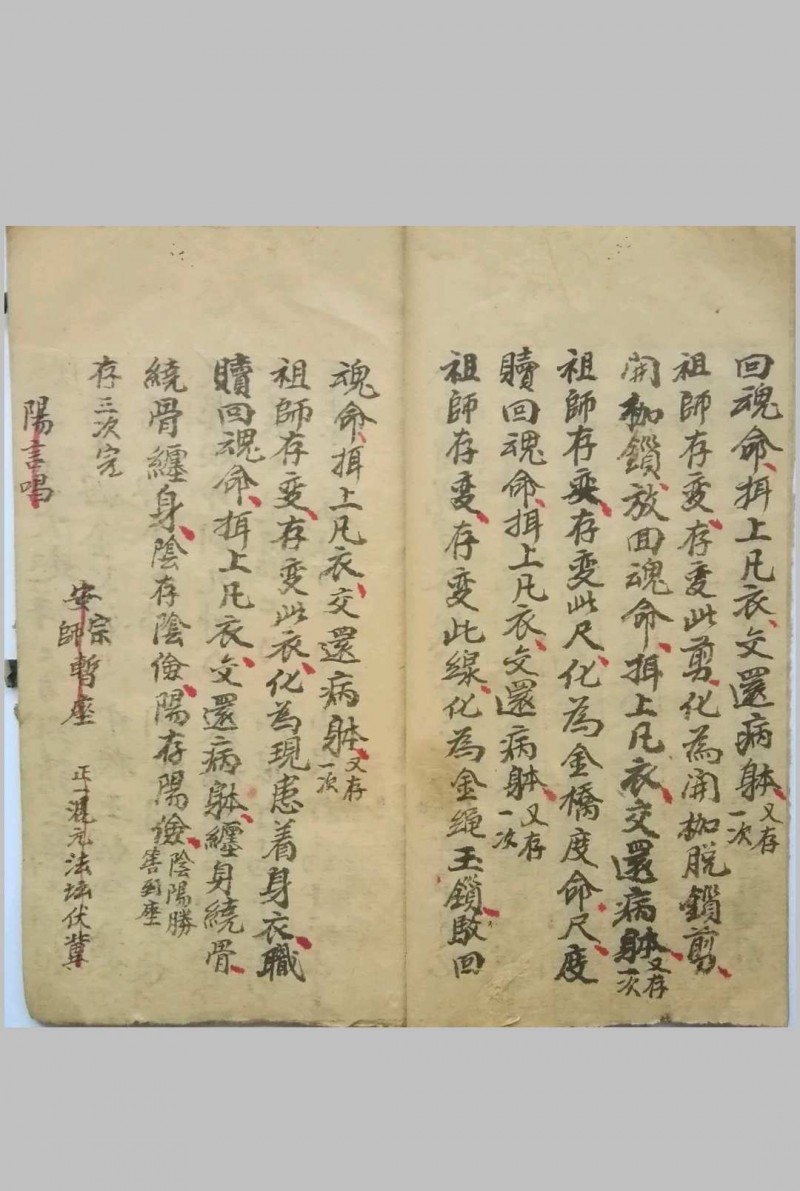 回魂命、揖上凡衣、交還病躰、又存一次
祖師存变、存变此剪、化為開枷脱鎖剪、
開枷鎖、放回魂命、揖上凡衣、交還病躰、又存一次
祖師存变、存变此尺、化為金橋度命尺、度
贖回魂命、揖上凡衣、交還病躰、又存一次
祖師存变、存变此線、化為金绳玉鎖、䭾回
魂命、揖上凡衣、交還病躰、又存一次
祖師存变、存变此衣、化為現患着身衣、職
贖回魂命、揖上凡衣、交還病躰、纏身繞骨、
繞骨纏身、陰存陰儉、陽存陽儉、陰陽勝筶到座
存三次完
安宗師暫座 正一混元法坛伏冀
陽言唱